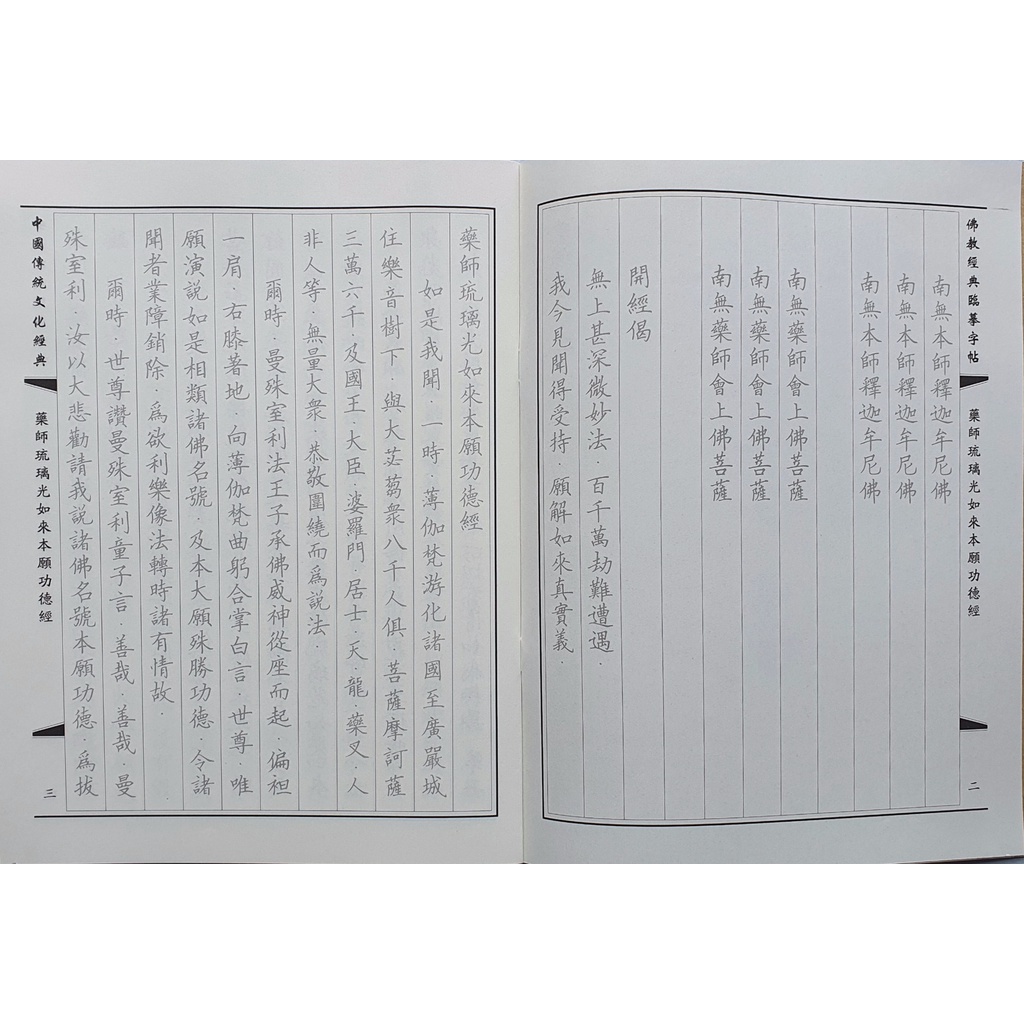 佛教經典臨摹字帖
藥師琉璃光如來本願功德經
二
南無本師釋迦牟尼佛
南無本師釋迦牟尼佛
南無本師釋迦牟尼佛
南無藥師會上佛菩薩
南無藥師會上佛菩薩
南無藥師會上佛菩薩
開經偈
無上甚深微妙法·百千萬劫難遭遇·
我今見聞得受持·願解如來真實義·
藥師琉璃光如來本願功德經
如是我聞·一時·薄伽梵游化諸國至廣嚴城
住樂音樹下·與大苾芻衆八千人俱·菩薩摩訶薩
三萬六千·及國王·大臣·婆羅門·居士·天·龍·藥叉·人
非人等·無量大衆·恭敬圍繞而爲說法·
爾時·曼殊室利法王子承佛威神從座而起·偏袒
一肩·右膝著地·向薄伽梵曲躬合掌白言·世尊·唯
願演說如是相類諸佛名號·及本大願殊勝功德·令諸
聞者業障銷除·爲欲利樂像法轉時諸有情故·
爾時·世尊讚曼殊室利童子言·善哉·善哉·曼
殊室利·汝以大悲勸請我說諸佛名號本願功德·爲拔
中國傳統文化經典
藥師琉璃光如來本願功德經
三